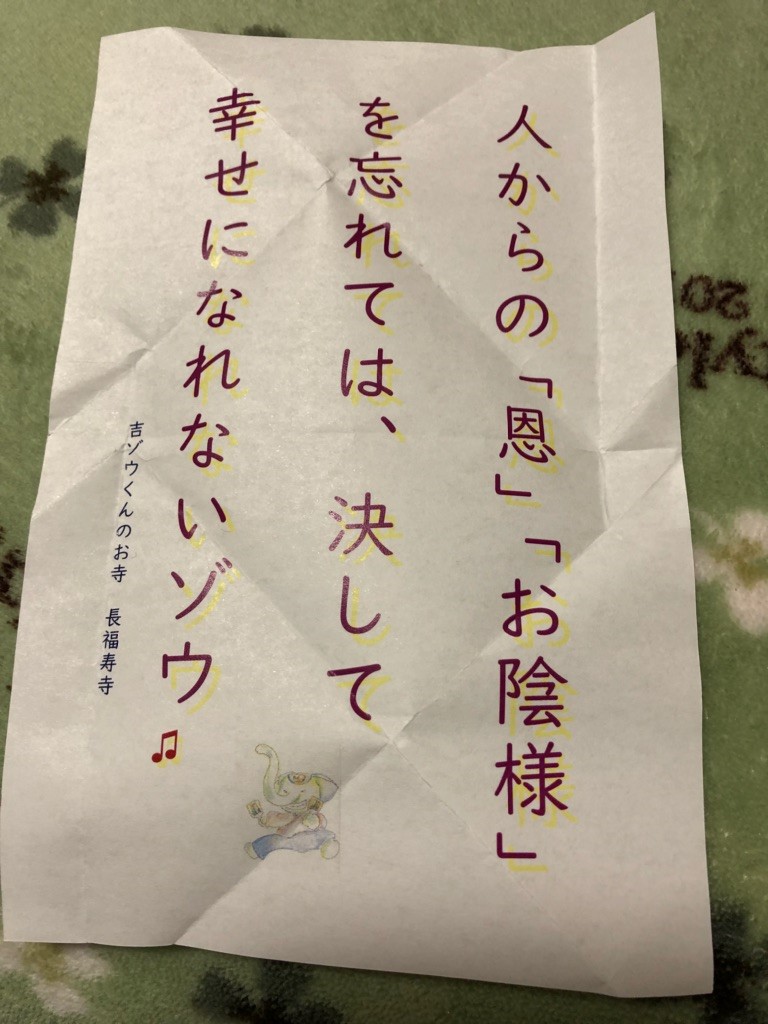 人からの「恩」「お陰様」
を忘れては、決して
幸せになれないゾウ♫
吉ゾウくんのお寺 長福寿寺
20